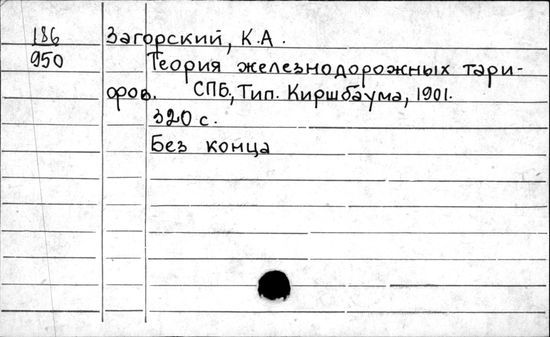 186 Загорский, К.А.
950 Теория железнодорожных тари-
фов. СПБ., Тип. Киршбаума, 1901.
320 с.
Без конца